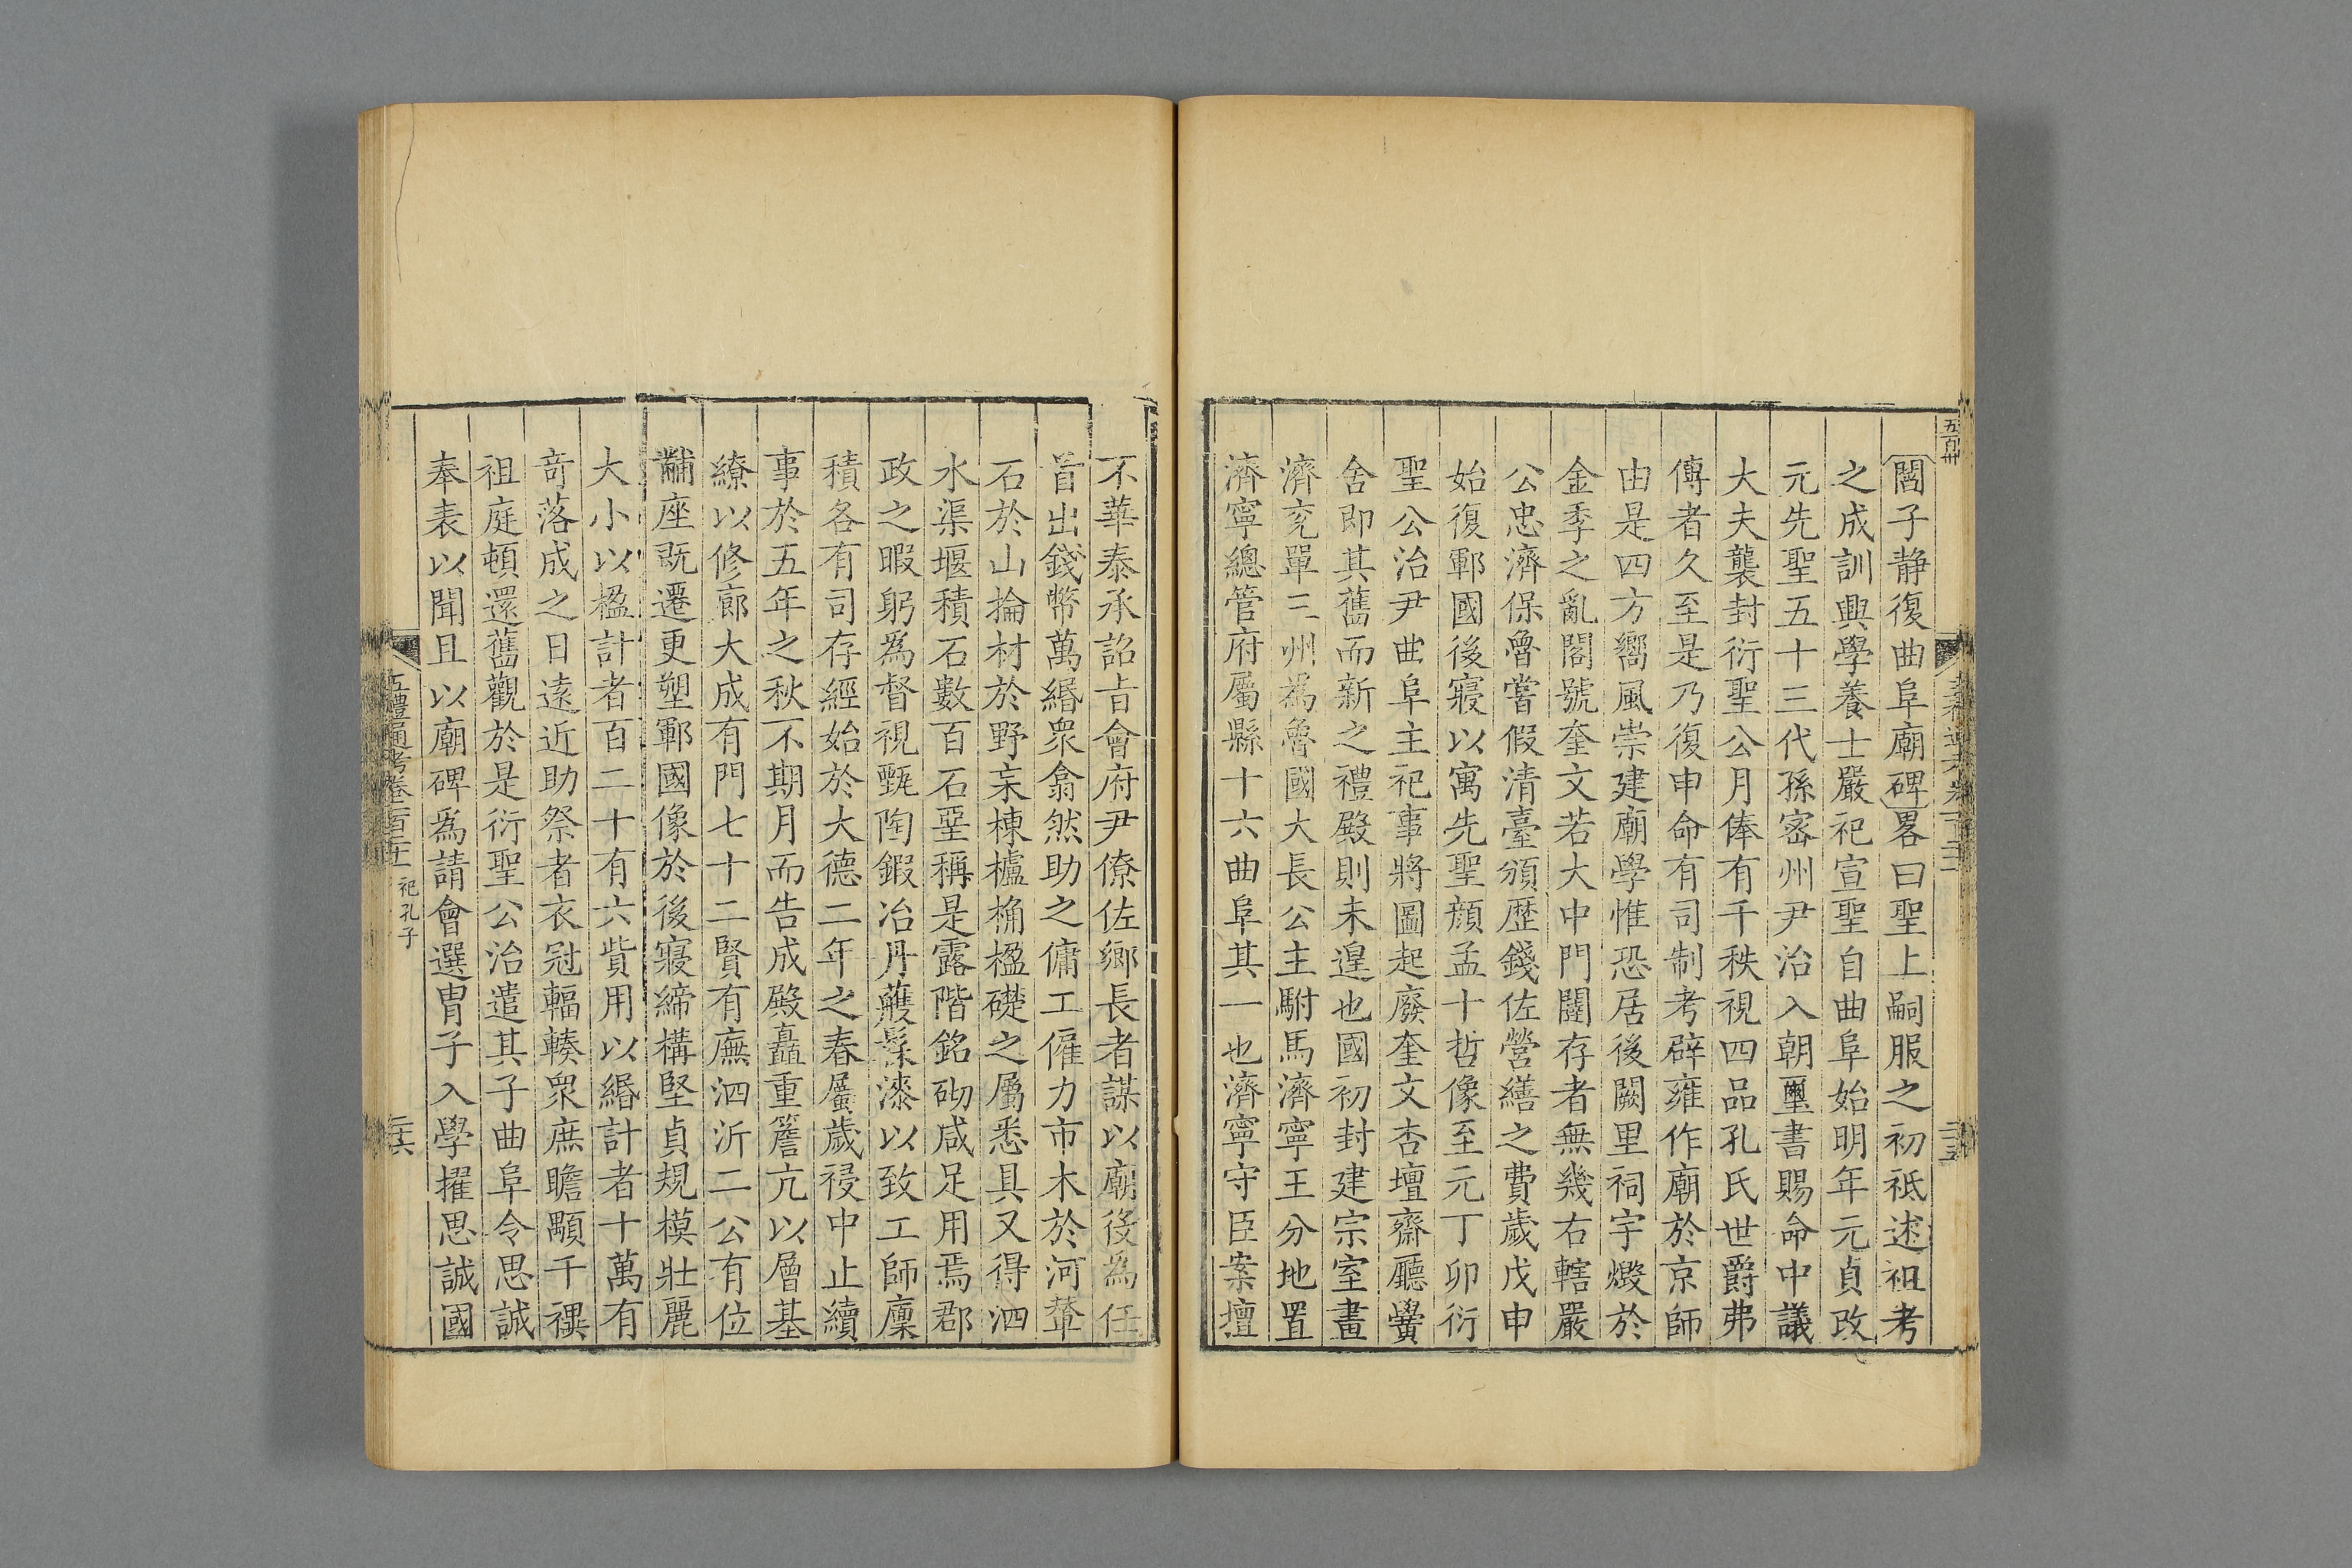 閻子静復曲阜廟碑畧曰聖上嗣服之初祗述祖考
之成訓興學養士嚴祀宣聖自曲阜始明年元貞改
元先聖五十三代孫宻州尹治入朝璽書賜命中議
大夫襲封衍聖公月俸有千秩視四品孔氏世爵弗
傳者久至是乃復申命有司制考辟雍作廟於京師
由是四方嚮風崇建廟學惟恐居後闕里祠宇燬於
金季之亂閣號奎文若大中門闥存者無幾右轄嚴
公忠濟保魯嘗假清臺頒歴錢佐營繕之費歲戊申
始復鄆國後寢以寓先聖顔孟十哲像至元丁卯衍
聖公治尹曲阜主祀事將圖起廢奎文杏壇齋廳黌
舍即其舊而新之禮殿則未遑也國初封建宗室畫
濟兖單三州為魯國大長公主駙馬濟寧王分地置
濟寧總管府屬縣十六曲阜其一也濟寧守臣案壇
不華泰承詔㫖會府尹僚佐鄉長者謀以廟役為任
首出錢幣萬緡衆翕然助之傭工僱力市木於河輦
石於山掄材於野宗棟櫨桷楹礎之屬悉具又得泗
水渠堰積石數百石堊稱是露階銘砌咸足用焉郡
政之暇躬為督視甄陶鍜冶丹雘髹漆以致工師廩
積各有司存經始於大德二年之春屬歲祲中止續
事於五年之秋不期月而告成殿矗重簷亢以層基
繚以修廊大成有門七十二賢有廡泗沂二公有位
黼座既遷更塑鄆國像於後寢締構堅貞規模壯麗
大小以楹計者百二十有六貲用以緡計者十萬有
竒落成之日遠近助祭者衣冠輻輳衆庶瞻顒千禩
祖庭頓還舊觀於是衍聖公治遣其子曲阜令思誠
奉表以聞且以廟碑為請會選胄子入學擢思誠國
祀孔子